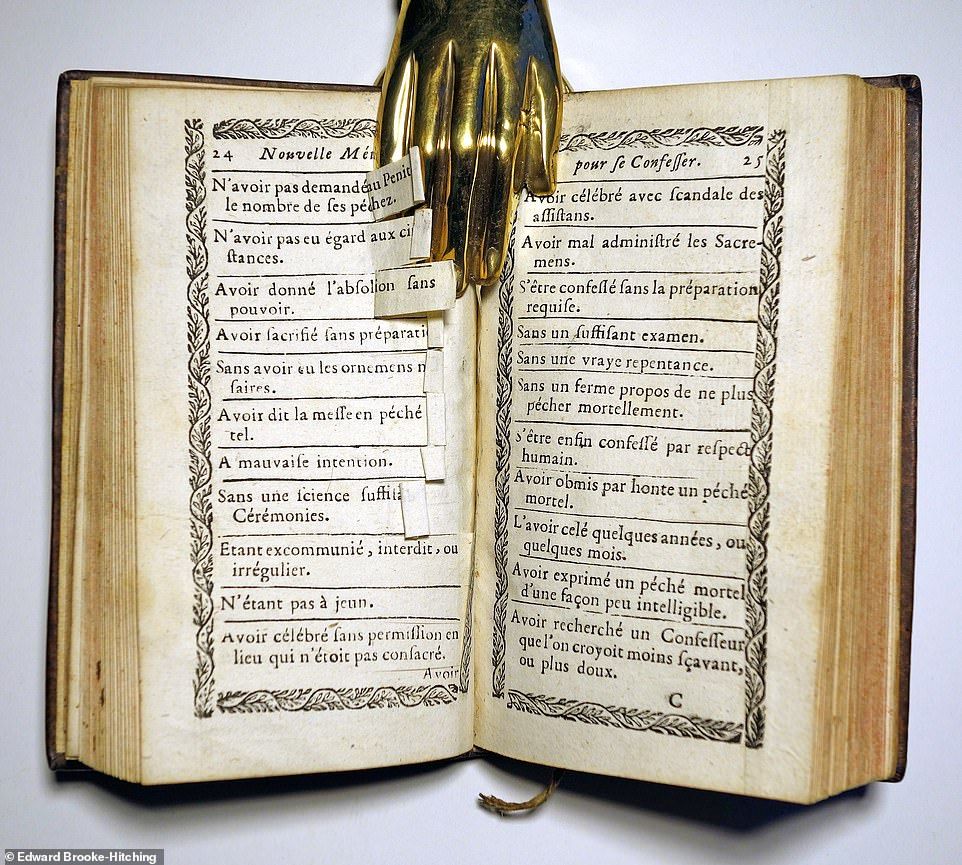 24 Nouvelle Mé
N'avoir pas demandé au Penit
le nombre de ſes péchez.
N'avoir pas eu égard aux ci
ſtances.
Avoir donné l'abſolution ſans
pouvoir.
Avoir ſacrifié ſans préparati
Sans avoir eu les ornemens n
ſaires.
Avoir dit la meſſe en péché
tel.
A mauvaiſe intention.
Sans une ſcience ſuffiſa
Cérémonies.
Etant excommunié, interdit, ou
irrégulier.
N'étant pas à jeun.
Avoir célébré ſans permiſſion en
lieu qui n'étoit pas conſacré.
Avoir
pour ſe Confeſſer. 25
Avoir célébré avec ſcandale des
aſſiſtans.
Avoir mal adminiſtré les Sacre-
mens.
S'être confeſſé ſans la préparation
requiſe.
Sans un ſuffiſant examen.
Sans une vraye repentance.
Sans un ferme propos de ne plus
pécher mortellement.
S'être enfin confeſſé par reſpect
humain.
Avoir obmis par honte un péché
mortel.
L'avoir celé quelques années, ou
quelques mois.
Avoir exprimé un péché mortel
d'une façon peu intelligible.
Avoir recherché un Confeſſeur
que l'on croyoit moins ſçavant,
ou plus doux.
C
© Edward Brooke-Hitching